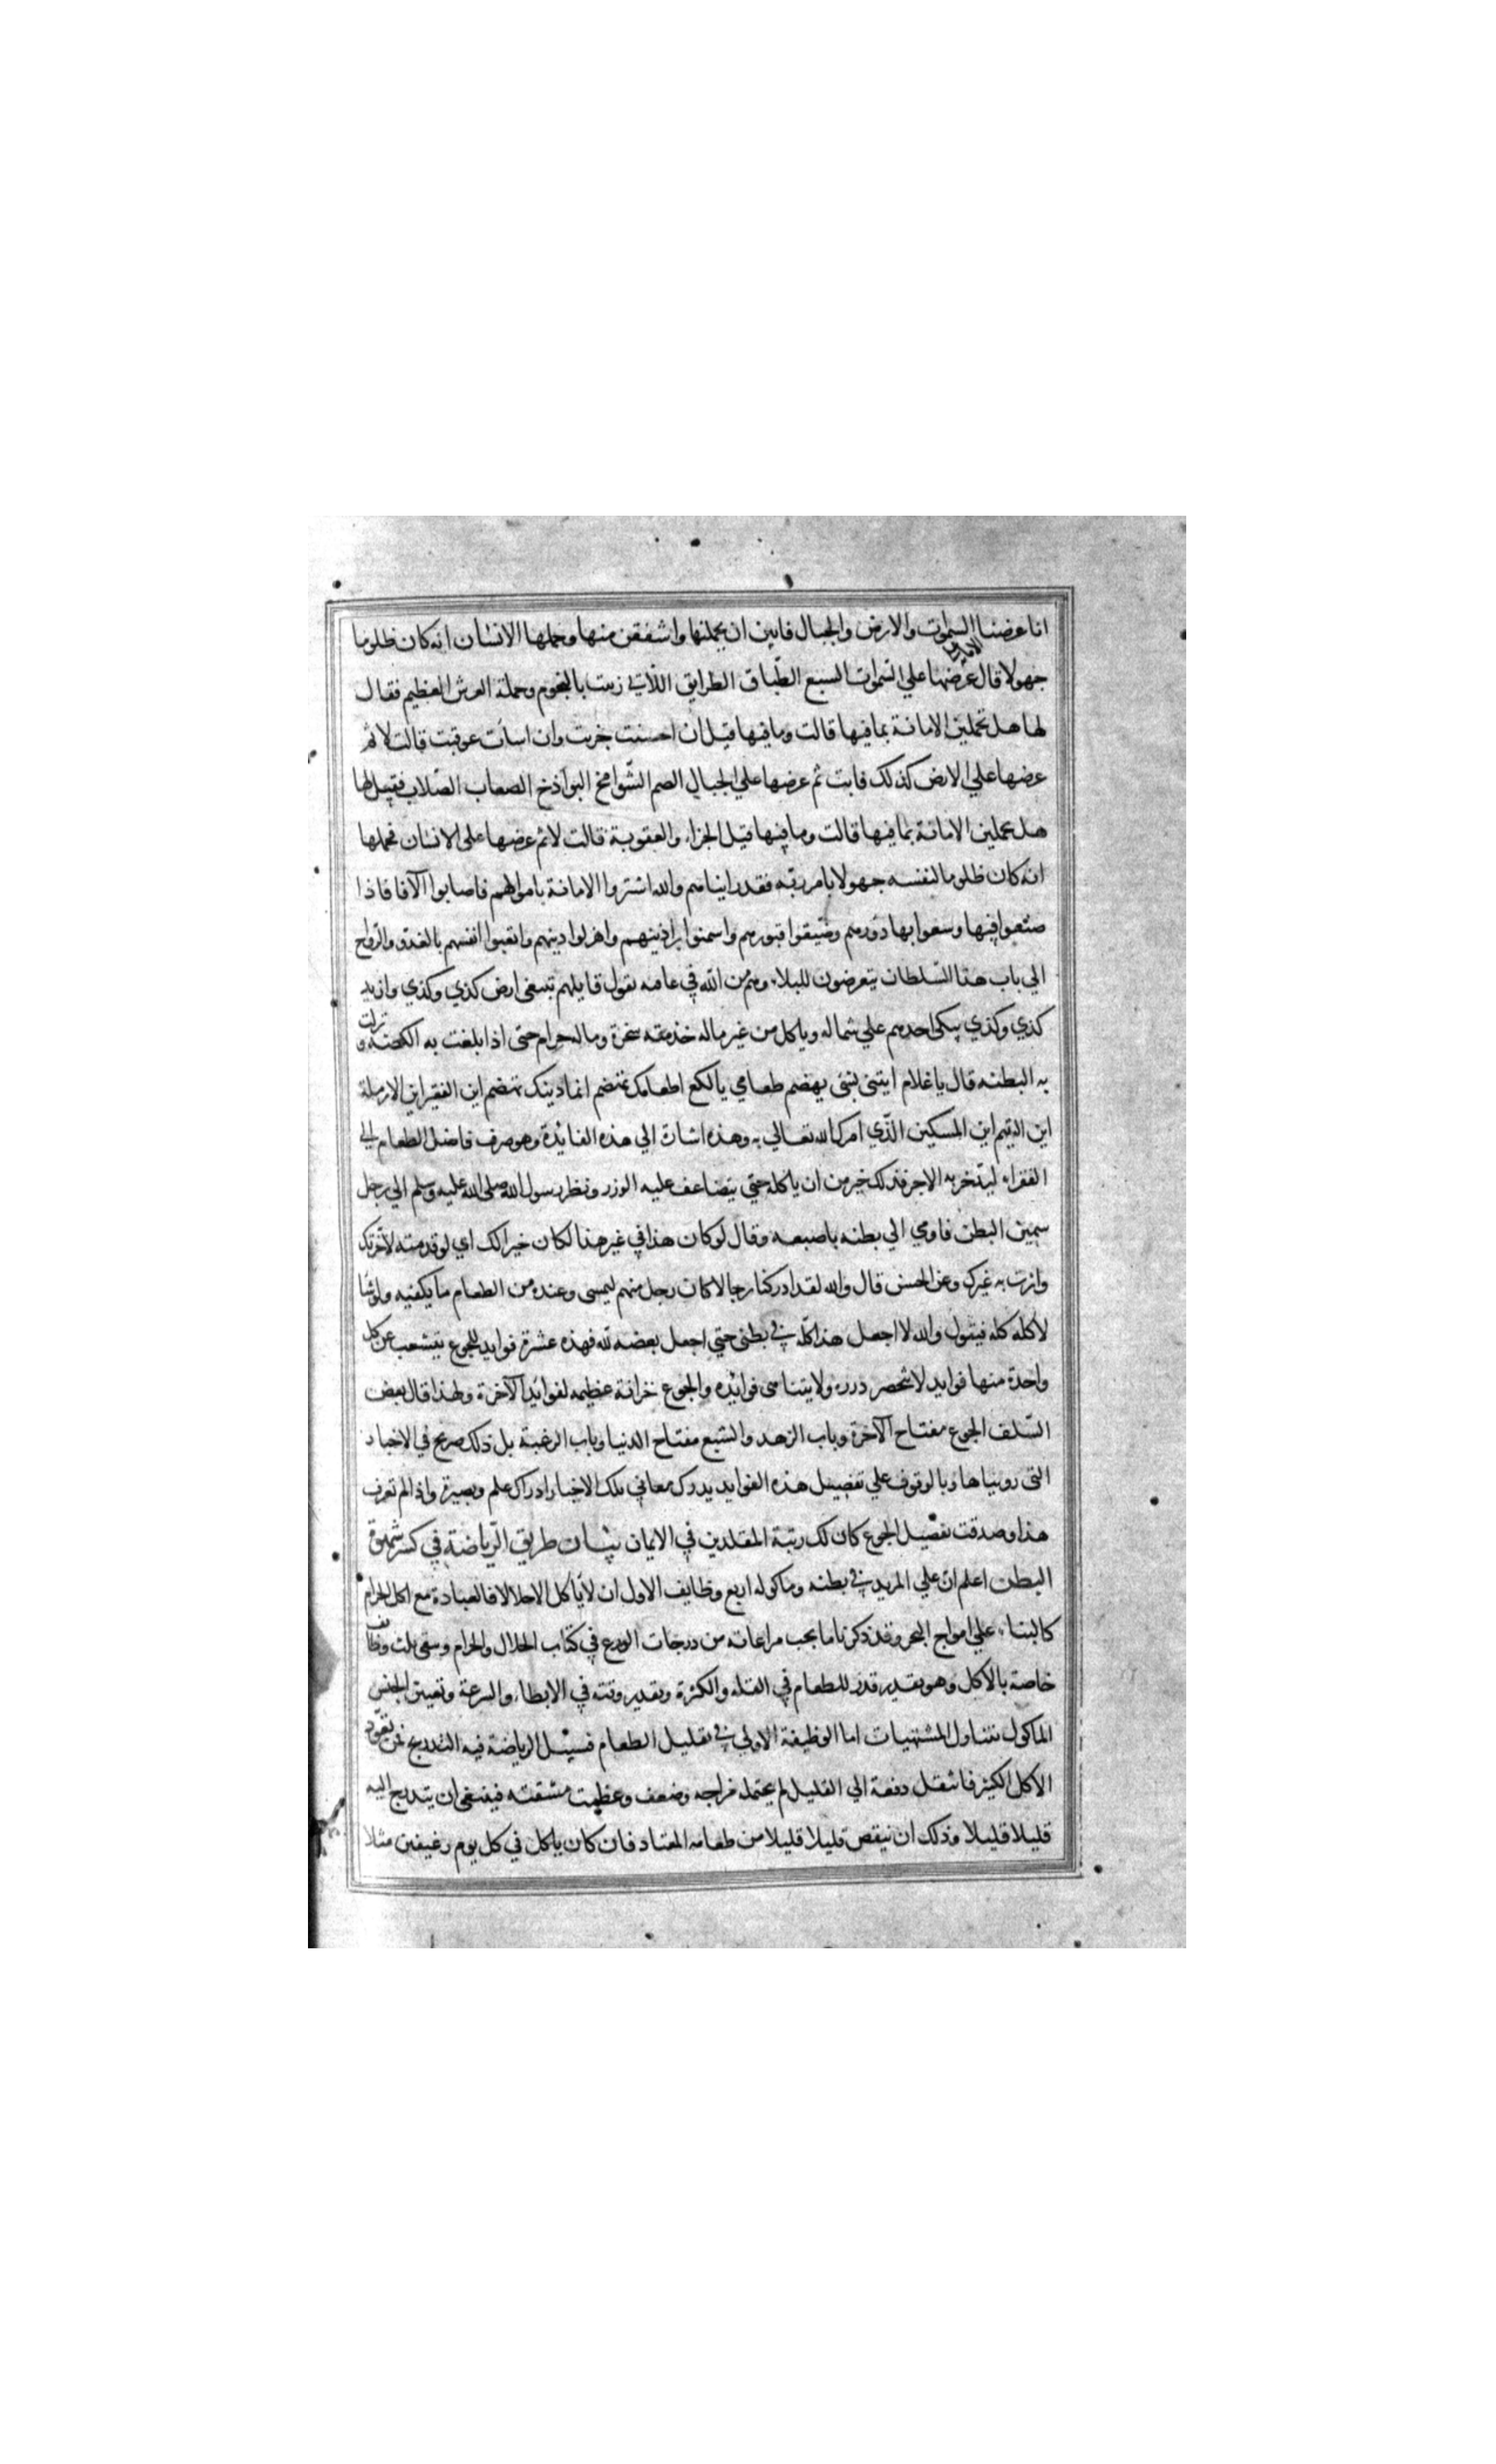 انا عرضنا السموات والارض والجبال فابين ان يحملنها واشفقن منها وحملها الانسان انه كان ظلوما
الامانة على
جهولا قال عرضها علي السموات السبع الطباق الطرايق اللاتي زينت بالنجوم وحملة العرش العظيم فقال
لها هل تحملين الامانة بما فيها قالت وما فيها قيل ان احسنت جزيت وان اسات عوقبت قالت لا ثم
عرضها علي الارض كذلك فابت ثم عرضها علي الجبال الصم الشوامخ البواذخ الصعاب الصلاب فقيل لها
هل تحملين الامانة بما فيها قالت وما فيها قيل الجزاء والعقوبة قالت لا ثم عرضها على الانسان فحملها
انه كان ظلوما لنفسه جهولا بامر ربه فقد راينا هم والله اشتروا الامانة باموالهم فاصابوا آلافا فاذا
صنعوا فيها وسعوا بها دورهم وضيقوا قبورهم واسمنوا براذينهم واهزلوا دينهم واتعبوا انفسهم بالغدو والرواح
الي باب هذا السلطان يتعرضون للبلاء وهم من الله في عافيه يقول قايلهم تبيعني ارض كذي وكذي وازيد
كذي وكذي يتكي احدهم علي شماله وياكل من غير ماله خدمته سخرة وماله حرام حتى اذا بلغت به الكضه ونزلت
به البطنه قال يا غلام ايتني بشي يهضم طعامي يا لكع اطعامك تهضم انما دينك تهضم اين الفقير اين الارملة
اين اليتيم اين المسكين الذي امرك الله تعالي به وهذه اشارة الي هذه الفايدة وهو صرف فاضل الطعام الي
الفقراء ليدخر به الاجر فذلك خير من ان ياكله حتي يتضاعف عليه الوزر ونظر رسول الله صلى الله عليه وسلم الي رجل
سمين البطن فاومي الي بطنه باصبعه وقال لو كان هذا في غير هذا لكان خيرا لك اي لو قدمته لآخرتك
واثرت به غيرك وعن الحسن قال والله لقد ادركنا رجالا كان رجل منهم ليمسى وعنده من الطعام ما يكفيه ولو شا
لاكله كله فيقول والله لا اجعل هذا كله في بطني حتي اجعل بعضه لله فهذه عشرة فوايد للجوع يتشعب عن كل
واحدة منها فوايد لا تنحصر درره ولا يتناهى فوائده والجوع خزانة عظيمه لفوائد الآخرة ولهذا قال بعض
السلف الجوع مفتاح الآخرة وباب الزهد والشبع مفتاح الدنيا وباب الرغبة بل ذلك صريح في الاخبار
التى رويناها وبالوقوف علي تفصيل هذه الفوايد يدرك معاني تلك الاخبار ادراك علم وبصيرة واذا لم تعرف
هذا وصدقت بفضيل الجوع كان لك رتبة المقلدين في الايمان بيان طريق الرياضة في كسر شهوة
البطن اعلم ان علي المريد في بطنه وماكوله اربع وظايف الاول ان لا ياكل الا حلالا فالعبادة مع اكل الحرام
كالبناء علي امواج البحر وقد ذكرنا ما يجب مراعاته من درجات الورع في كتاب الحلال والحرام وبقي ثلث وظايف
خاصة بالاكل وهو تقدير قدر للطعام في القلة والكثرة وتقدير وقته في الابطاء والسرعة وتعيين الجنس
الماكول بتناول المشتهيات اما الوظيفة الاولي في تقليل الطعام فسبيل الرياضة فيه التدريج فمن تعود
الاكل الكثير فانتقل دفعة الي القليل لم يحتمله مزاجه وضعف وعظمت مشقته فينبغي ان يتدرج اليه
قليلا قليلا وذلك ان ينقص قليلا قليلا من طعامه المعتاد فان كان ياكل في كل يوم رغيفين مثلا